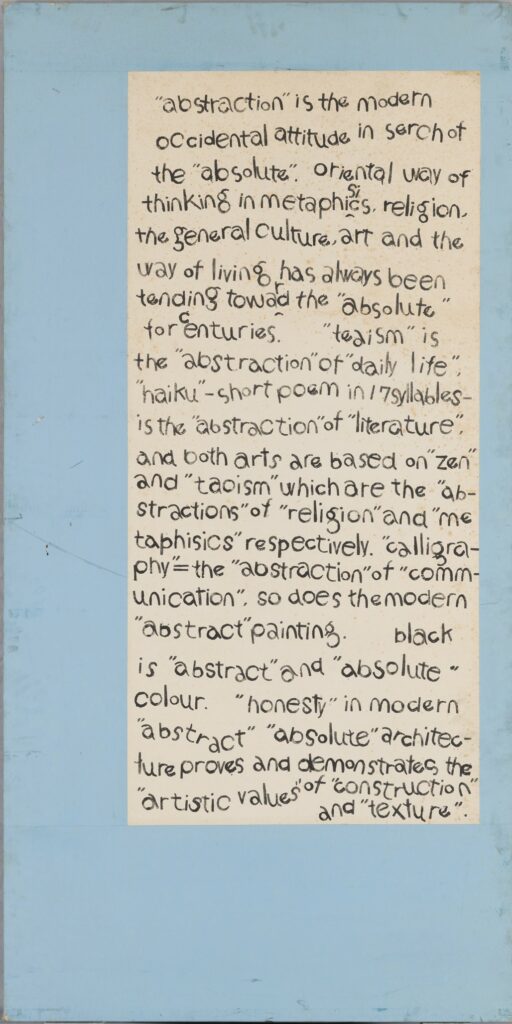 "abstraction" is the modern
occidental attitude in serch of
the "absolute". oriental way of
thinking in metaphisics, religion,
the general culture, art and the
way of living, has always been
tending toward the "absolute"
for centuries. "teaism" is
the "abstraction" of "daily life",
"haiku"-short poem in 17 syllables-
is the "abstraction" of "literature",
and both arts are based on "zen"
and "taoism" which are the "ab-
stractions" of "religion" and "me
taphisics" respectively. "calligra-
phy"= the "abstraction" of "comm-
unication", so does the modern
"abstract" painting. black
is "abstract" and "absolute"
colour. "honesty" in modern
"abstract" "absolute" architec-
ture proves and demonstrates the
"artistic values" of "construction"
and "texture".